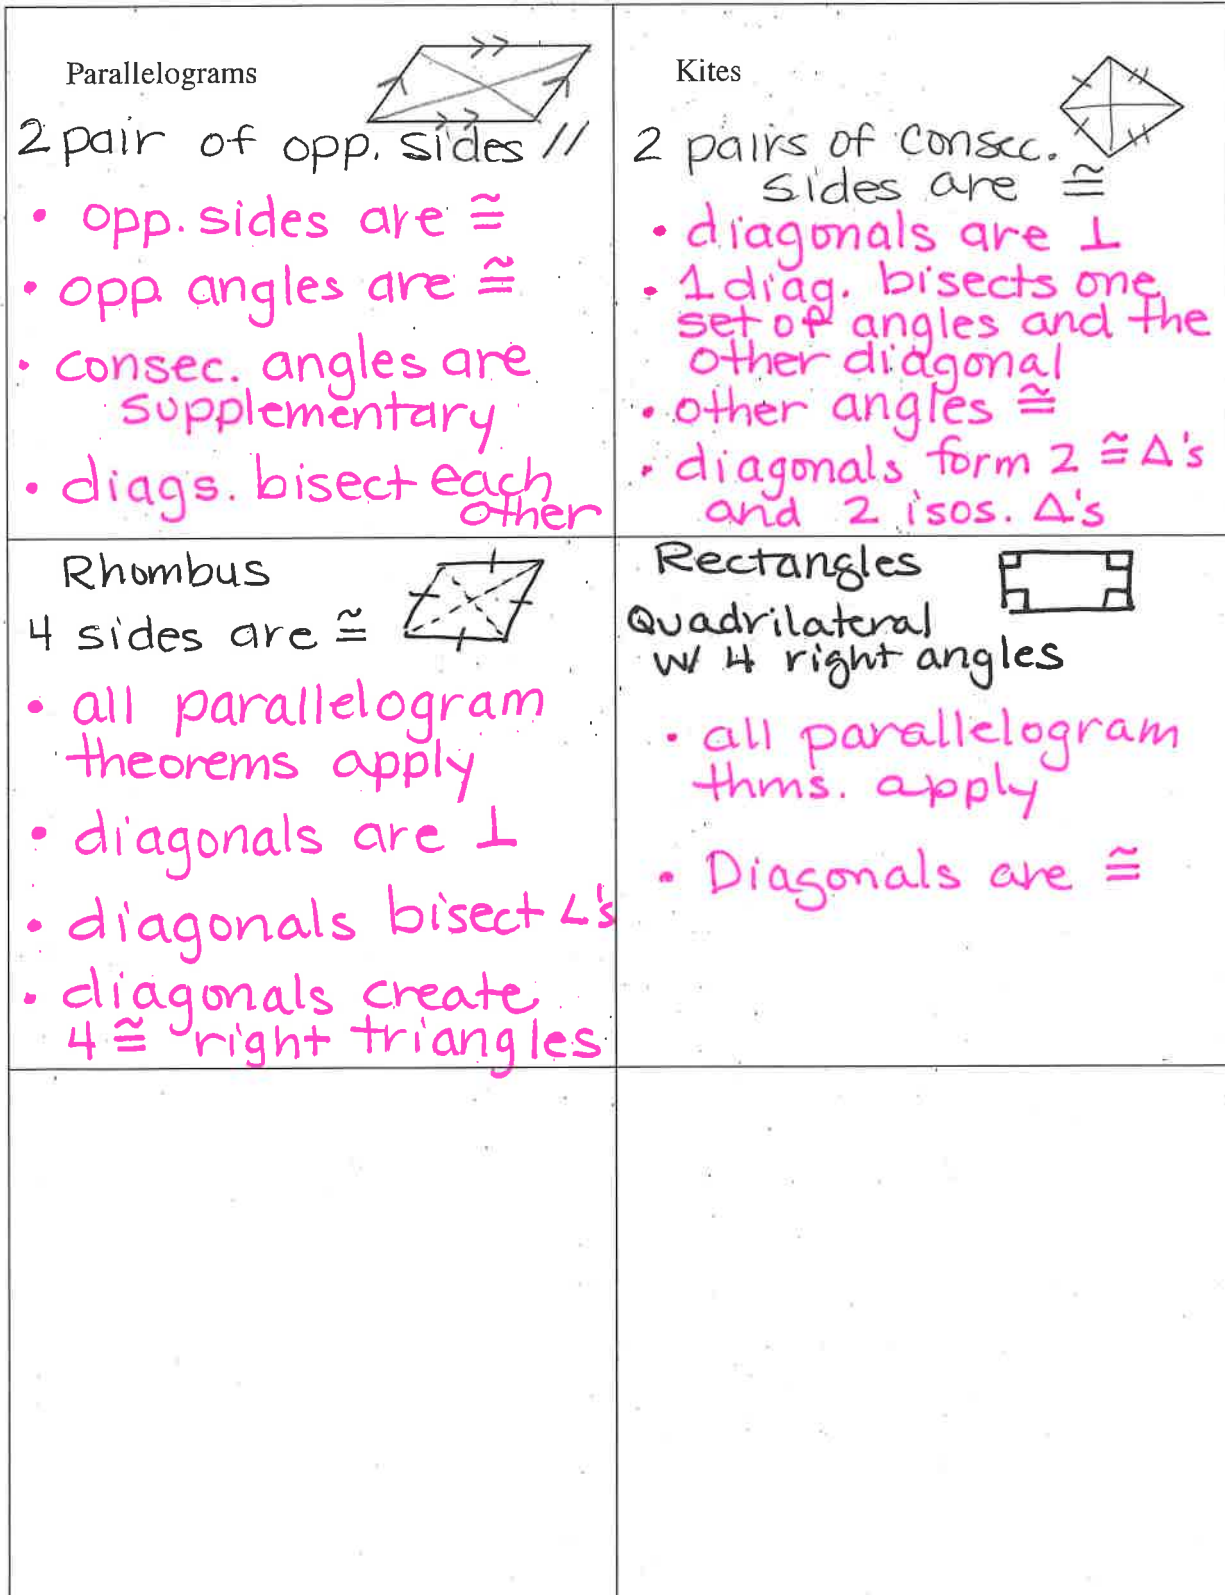 Parallelograms
2 pair of opp. sides //
• opp. sides are ≅
• opp. angles are ≅
• consec. angles are
supplementary
• diags. bisect each
other
Kites
2 pairs of consec.
sides are ≅
• diagonals are ⊥
• 1 diag. bisects one
set of angles and the
other diagonal
• other angles ≅
• diagonals form 2 ≅ Δ's
and 2 isos. Δ's
Rhombus
4 sides are ≅
• all parallelogram
theorems apply
• diagonals are ⊥
• diagonals bisect ∠'s
• diagonals create
4 ≅ right triangles
Rectangles
Quadrilateral
w/ 4 right angles
• all parallelogram
thms. apply
• Diagonals are ≅